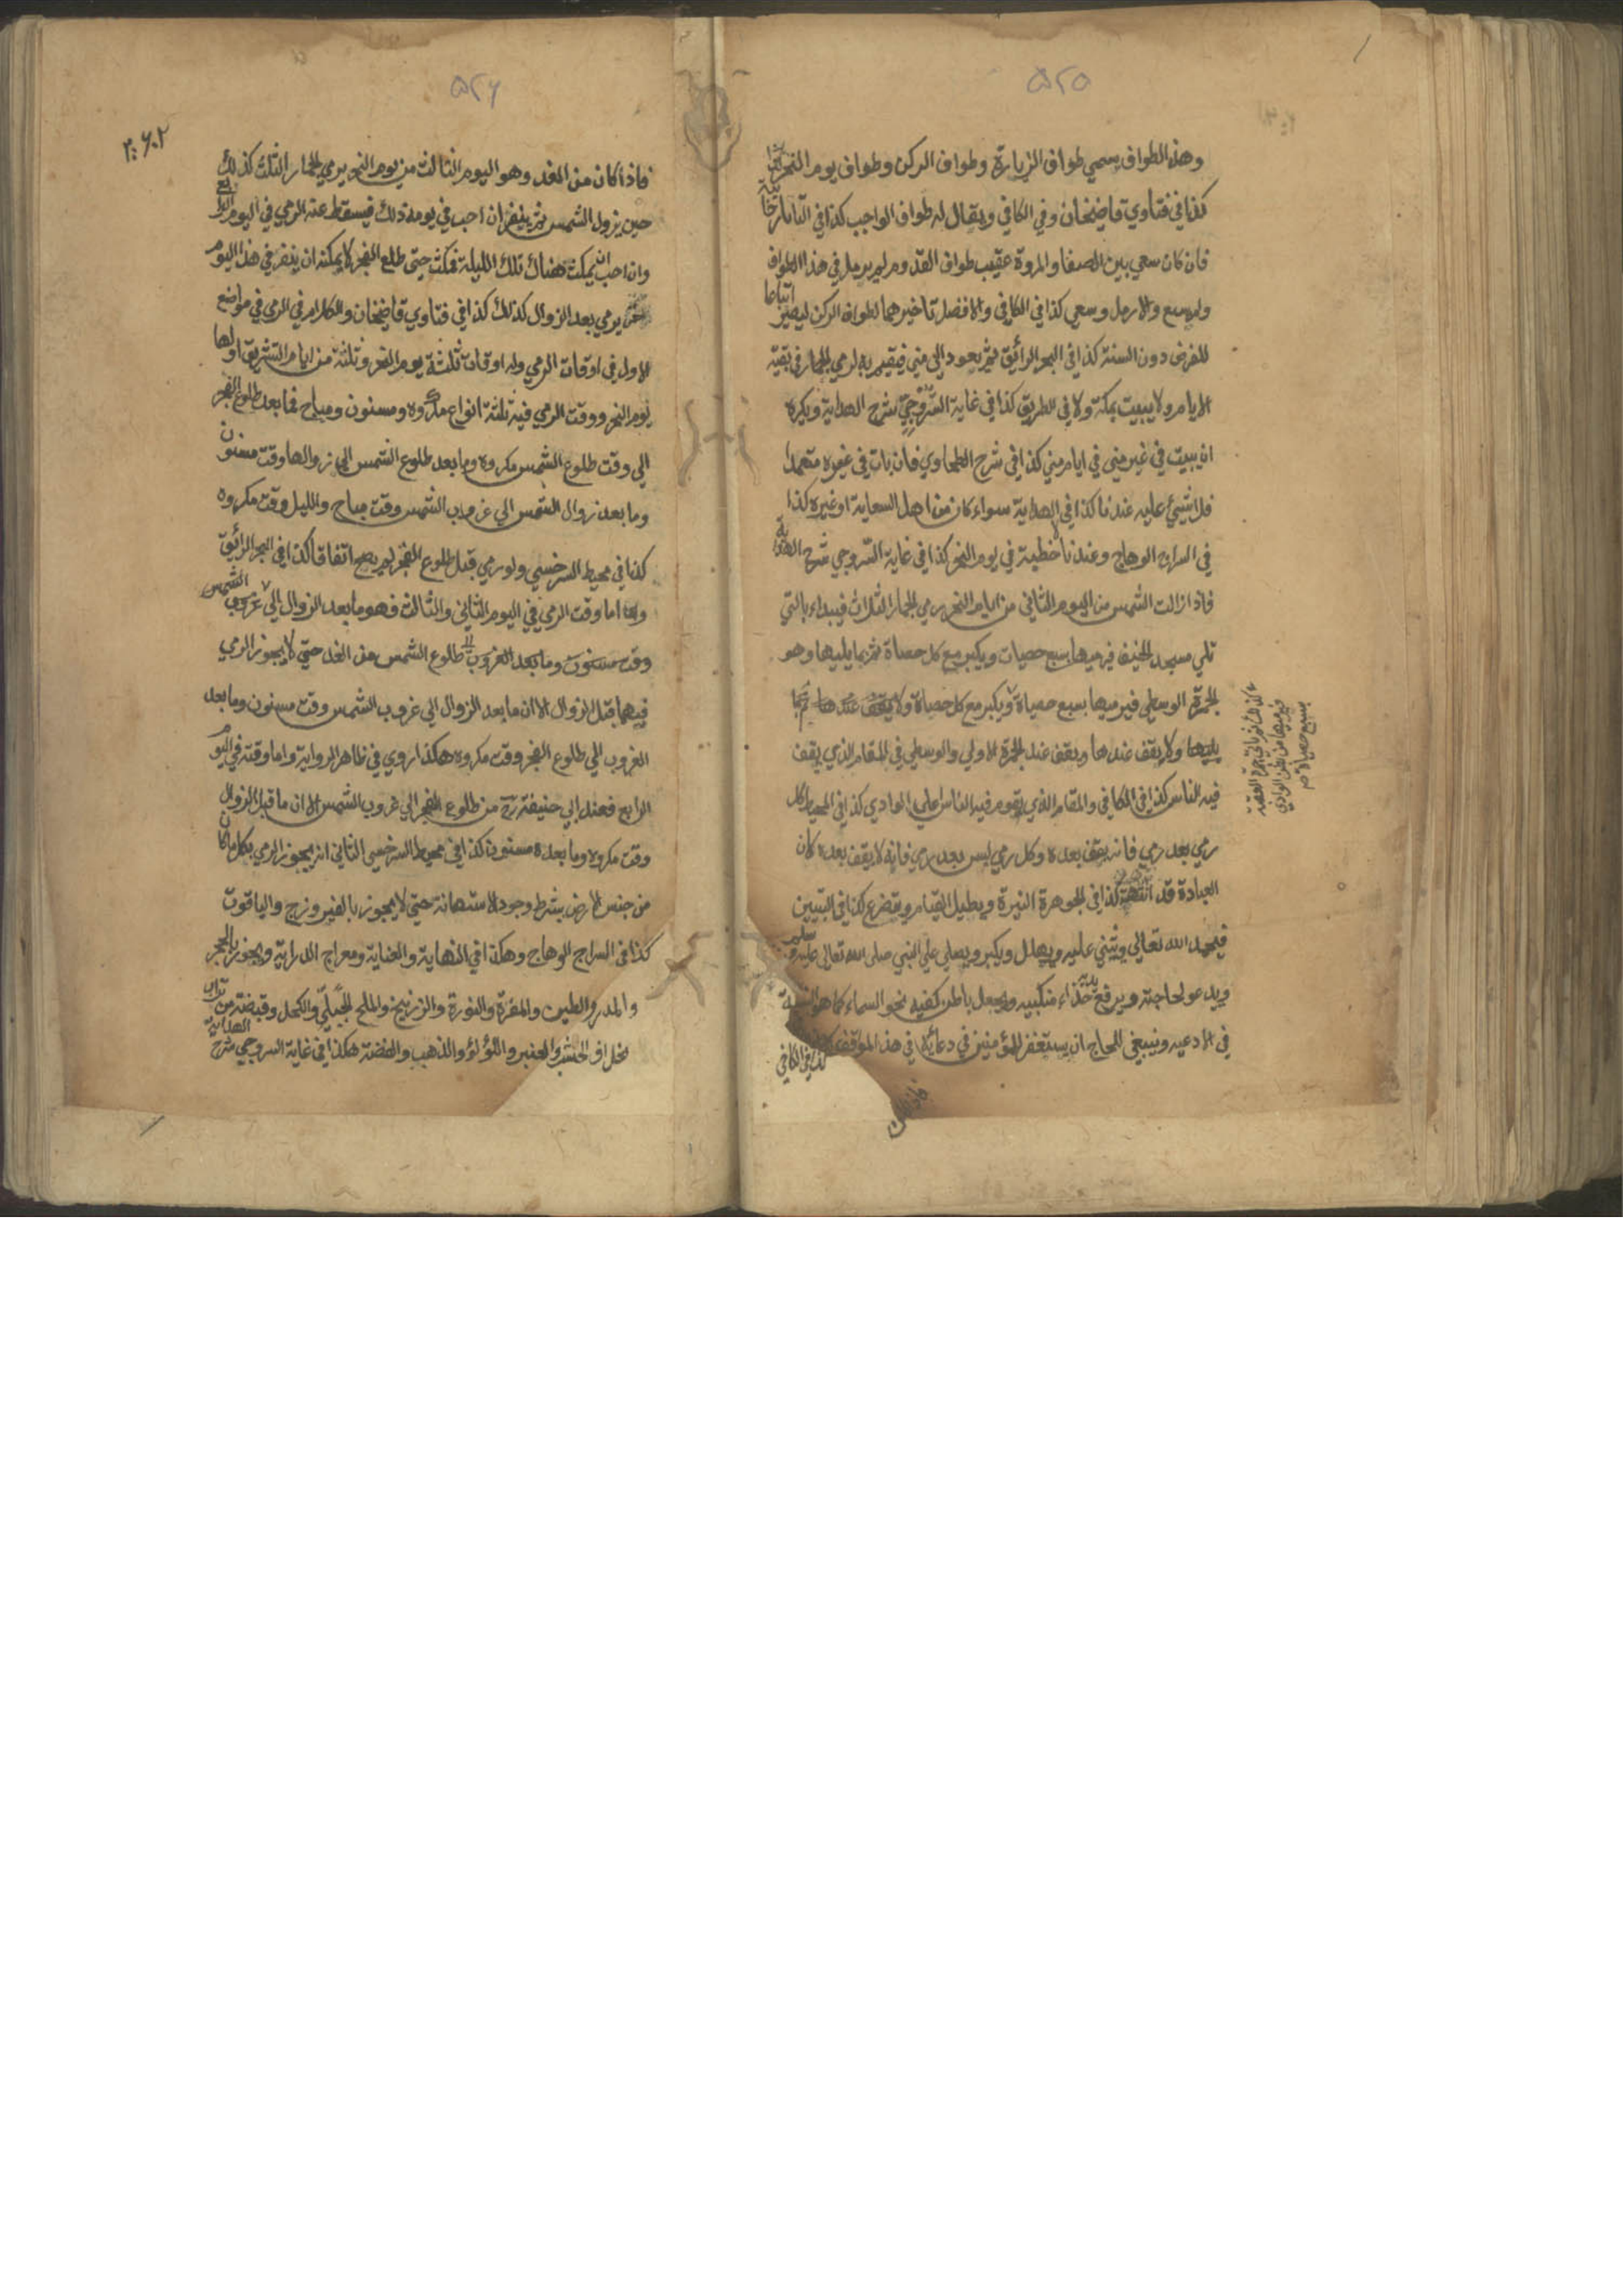 ٥٢٥
وهذا الطواف يسمي طواف الزيارة وطواف الركن وطواف يوم النحر
كذا في فتاوي قاضيخان وفي الكافي ويقال له طواف الواجب كذا في التاتارخانية
فان كان سعي بين الصفا والمروة عقيب طواف القدوم لم يرمل في هذا الطواف
ولم يسع والا رمل وسعي كذا في الكافي والافضل تاخيرهما لطواف الركن ليصير اتباعا
للفرض دون السنة كذا في البحر الرائق ثم يعود الي مني فيقيم به لرمي الجمار في بقية
الايام ولا يبيت بمكة ولا في الطريق كذا في غاية السروجي شرح الهداية ويكره
ان يبيت في غير مني في ايام مني كذا في شرح الطحاوي فان بات في غيره متعمدا
فلا شيئ عليه عندنا كذا في الهداية سواء كان من اهل السعاية او غيره كذا
في السراج الوهاج وعندنا لا خطبة في يوم النحر كذا في غاية السروجي شرح الهداية
فاذا زالت الشمس من اليوم الثاني من ايام النحر رمي الجمار الثلاث فيبداء بالتي
تلي مسجد الخيف فيرميها بسبع حصيات ويكبر مع كل حصاة ثم بما يليها وهو
الجمرة الوسطي فيرميها بسبع حصياة ويكبر مع كل حصاة ولا يقف عندها ثم بما
يليها ولا يقف عندها ويقف عند الجمرة الاولي والوسطي في المقام الذي يقف
فيه الناس كذا في الكافي والمقام الذي يقوم فيه الناس اعلي الوادي كذا في المحيط كل
رمي بعد رمي فانه يقف بعده وكل رمي ليس بعد رمي فانه لا يقف بعده لان
العبادة قد انتهت كذا في الجوهرة النيرة ويطيل القيام ويتضرع كذا في التبيين
فيحمد الله تعالي ويثني عليه ويهلل ويكبر ويصلي علي النبي صلى الله تعالى عليه وسلم
ويدعو لحاجته ويرفع يديه حذاء منكبيه ويجعل باطن كفيه نحو السماء كما هو السنة
في الادعيه وينبغي للحاج ان يستغفر للمؤمنين في دعائه في هذا المواقف
كذا في الكافي
كذلك ثم ياتي جمرة العقبة
فيرميها من بطن الوادي
بسبع حصياة
٥٢٦
فاذا كان من الغد وهو اليوم الثالث من يوم النحر يرمي الجمار الثلث كذلك
حين يزول الشمس ثم ينفر ان احب في يومه ذلك فيسقط عنه الرمي في اليوم الرابع
وان احب ان يمكث هناك تلك الليلة فمكث حتي طلع الفجر لا يمكنه ان ينفر في هذا اليوم
حتي يرمي بعد الزوال كذلك كذا في فتاوي قاضيخان والكلام في الرمي في مواضع
الاول في اوقات الرمي وله اوقات ثلثة يوم النحر وثلثة من ايام التشريق اولها
يوم النحر ووقت الرمي فيه ثلثة انواع مكروه ومسنون ومباح فما بعد طلوع الفجر
الي وقت طلوع الشمس مكروه وما بعد طلوع الشمس الي زوالها وقت مسنون
وما بعد زوال الشمس الي غروب الشمس وقت مباح والليل وقت مكروه
كذا في محيط السرخسي ولو رمي قبل طلوع الفجر لم يصح اتفاقا كذا في البحر الرائق
واما وقت الرمي في اليوم الثاني والثالث فهو ما بعد الزوال الي غروب الشمس
وقت مسنون وما بعد الغروب الي طلوع الشمس من الغد حتي لا يجوز الرمي
فيهما قبل الزوال الا ان ما بعد الزوال الي غروب الشمس وقت مسنون وما بعد
الغروب الي طلوع الفجر وقت مكروه هكذا روي في ظاهر الرواية واما وقته في اليوم
الرابع فعند ابي حنيفة رح من طلوع الفجر الي غروب الشمس الا ان ما قبل الزوال
وقت مكروه وما بعده مسنون كذا في محيط السرخسي الثاني انه يجوز الرمي بكل ما كان
من جنس الارض بشرط وجود الاستهانة حتي لا يجوز بالفيروزج والياقوت
كذا في السراج الوهاج وهكذا في النهاية والعناية ومعراج الدراية ويجوز بالحجر
والمدر والطين والمغرة والنورة والزرنيخ والملح الجبلي والكحل وقبضة من تراب
بخلاف الخشب والعنبر واللؤلؤ والذهب والفضة هكذا في غاية السروجي شرح الهداية